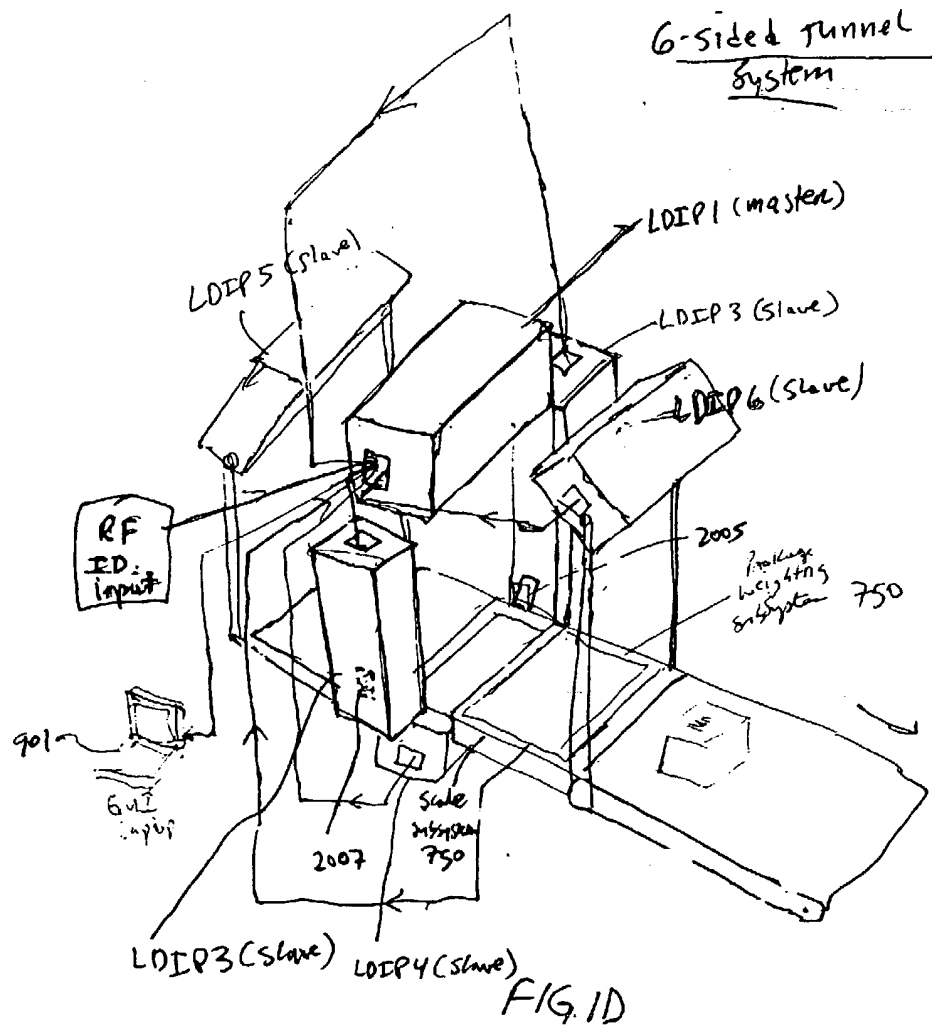 6-sided Tunnel
System
LDIP1 (master)
LDIP5 (slave)
LDIP3 (slave)
LDIP6 (slave)
RF
ID.
input
2005
Package
weighting
subsystem 750
901
GUI
input
2007
Scale
subsystem
750
LDIP3 (slave)
LDIP4 (slave)
FIG. 1D